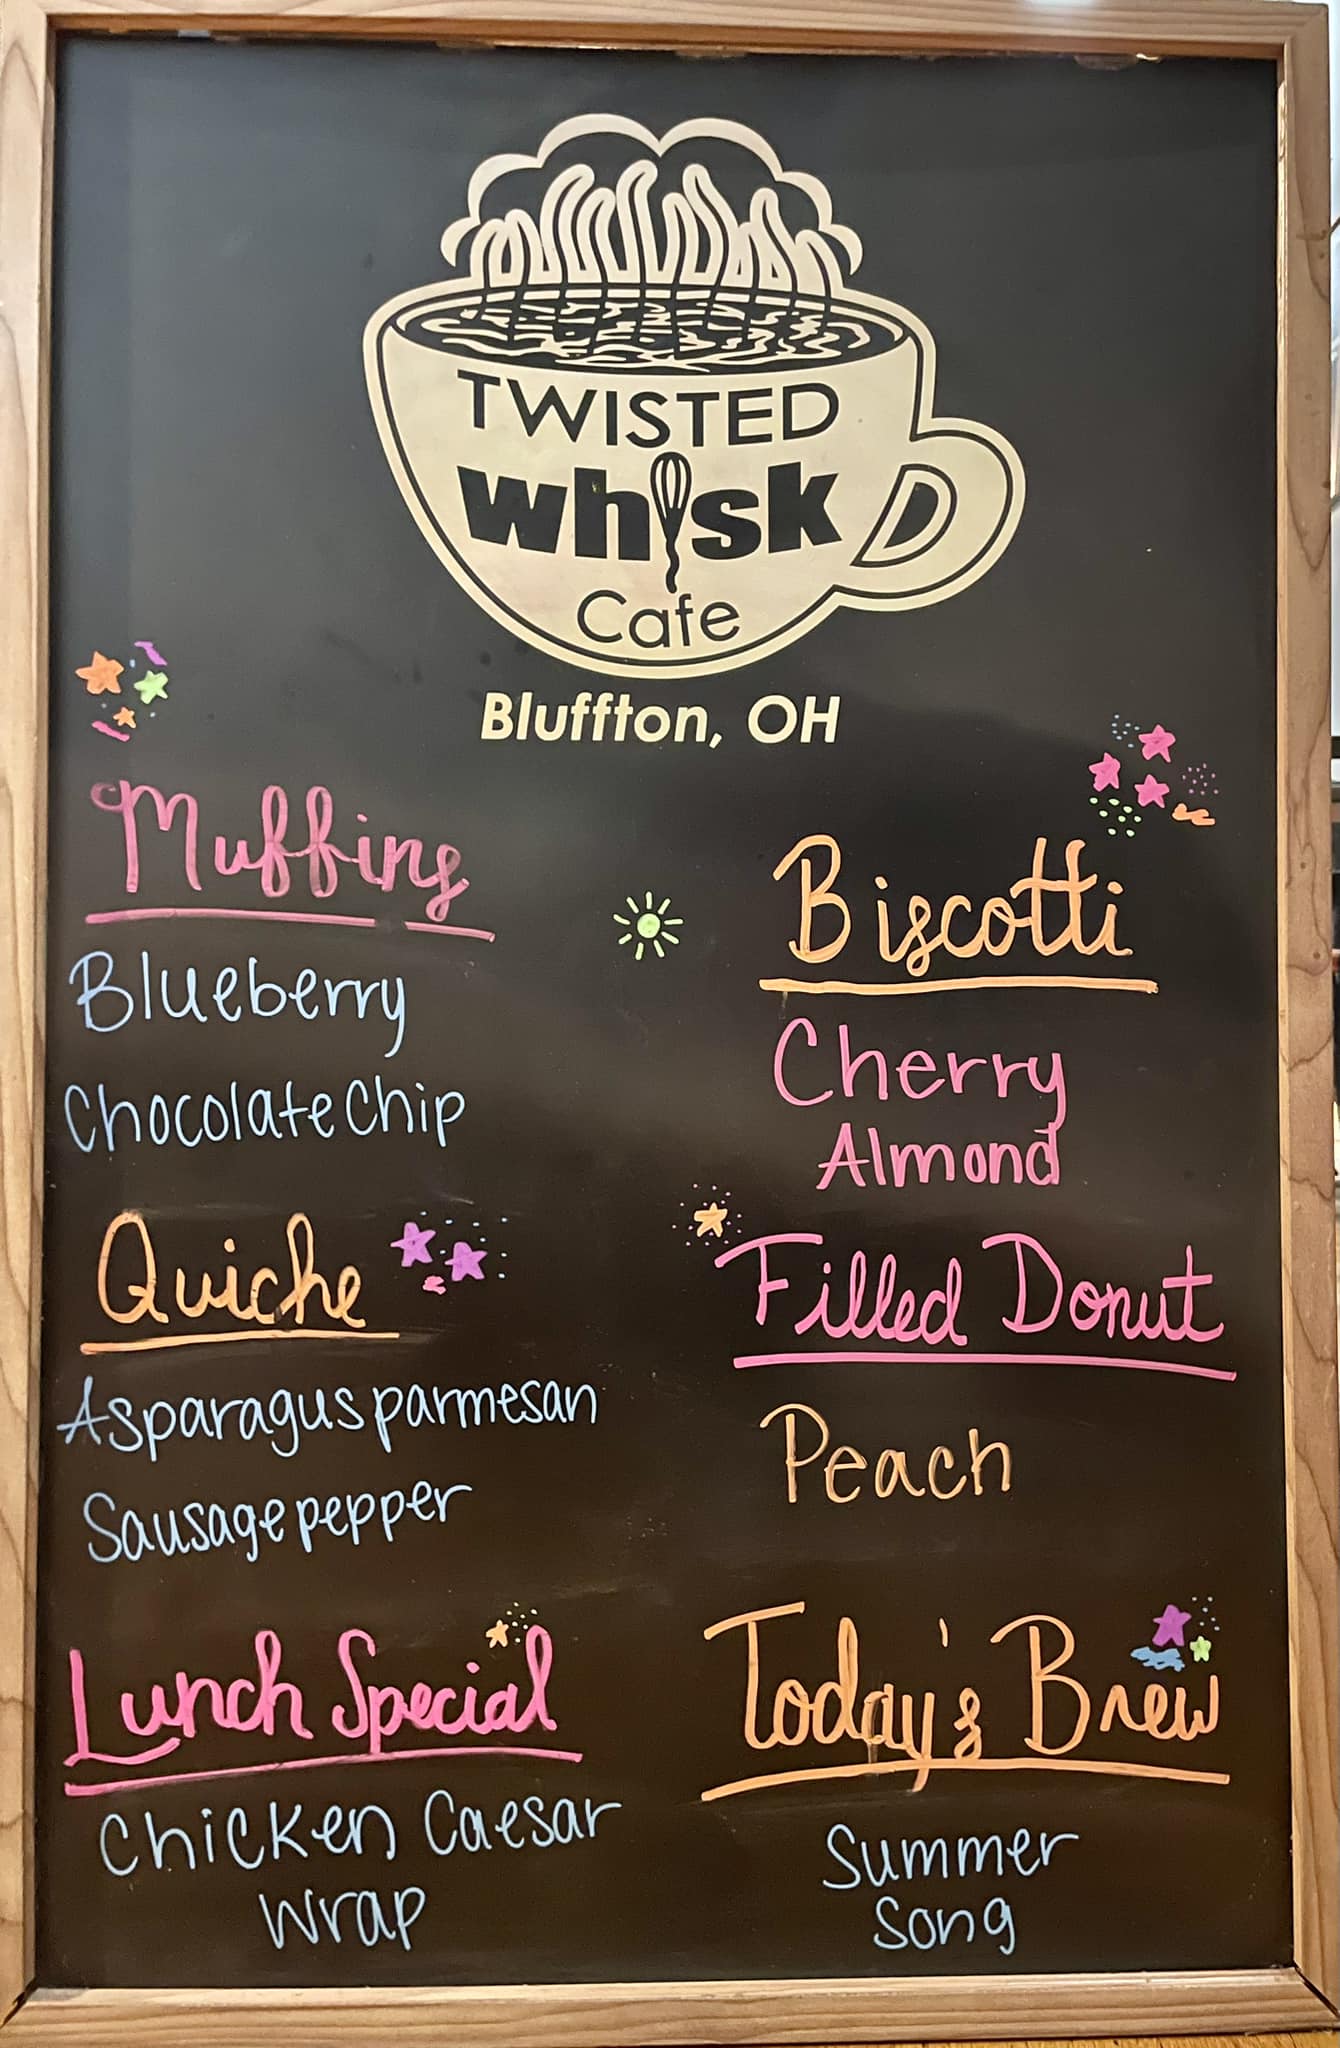 TWISTED
whisk
Cafe
Bluffton, OH
Muffins
Blueberry
Chocolate Chip
Quiche
Asparagus parmesan
Sausage pepper
Lunch Special
Chicken Caesar
Wrap
Biscotti
Cherry
Almond
Filled Donut
Peach
Today's Brew
Summer
Song